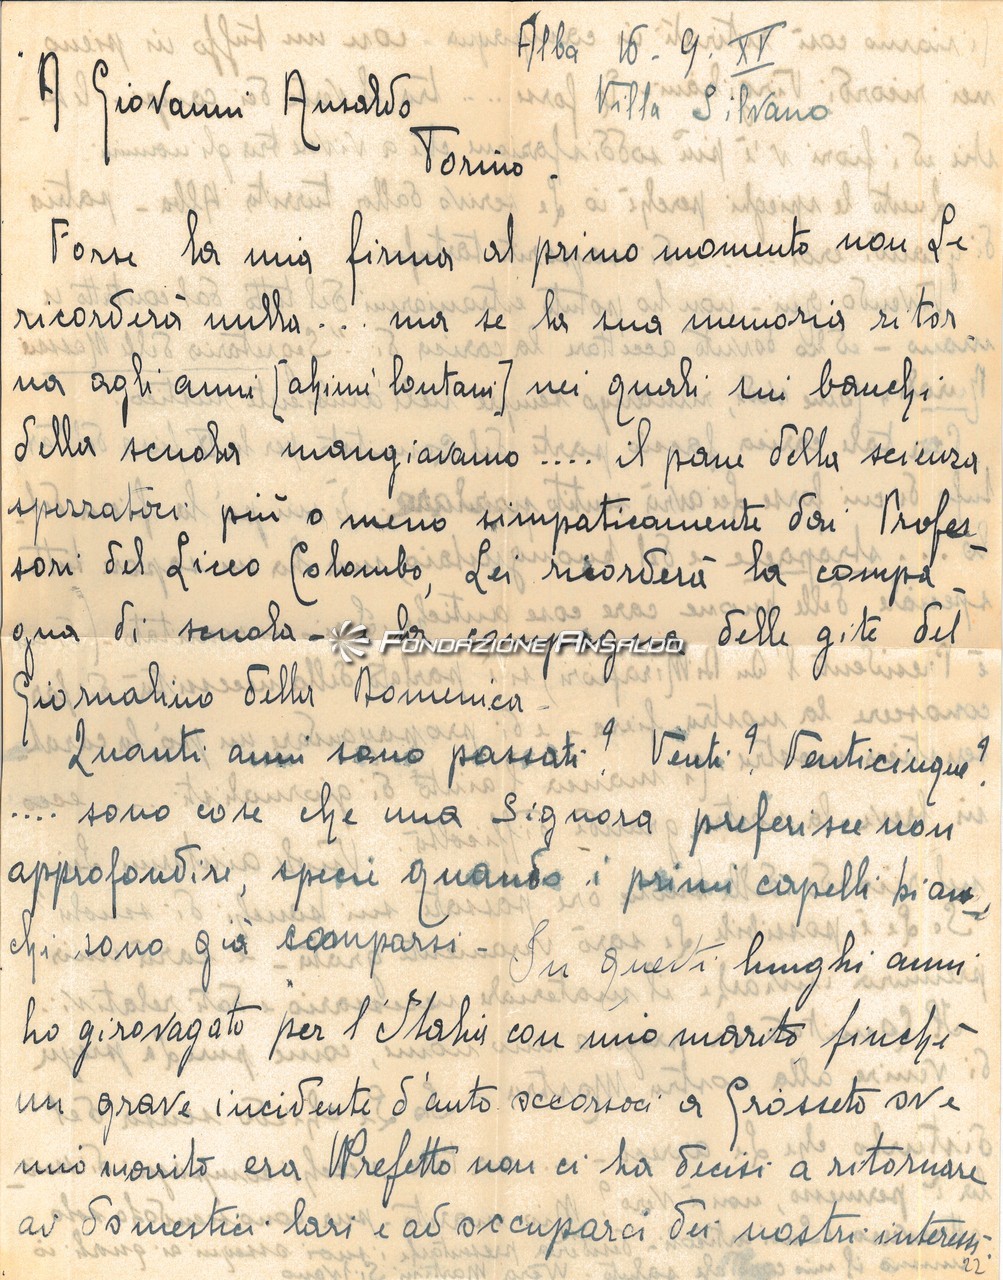 Alba 16. 9. XV
Villa Silvano
A Giovanni Ansaldo
Torino -
Forse la mia firma al primo momento non Le
ricorderà nulla.... ma se la sua memoria ritor
na agli anni [ahimè lontani] nei quali sui banchi
della scuola mangiavamo.... il pane della scienza
spezzatoci più o meno simpaticamente dai Profes
sori del Liceo Colombo, Lei ricorderà la compa
gna di scuola - e la compagna delle gite del
FONDAZIONE ANSALDO
Giornalino della Domenica -
Quanti anni sono passati? Venti? Venticinque?
.... sono cose che una Signora preferisce non
approfondire, specie quando i primi capelli bian
chi sono già comparsi - In questi lunghi anni
ho girovagato per l'Italia con mio marito, finchè
un grave incidente d'auto occorsoci a Grosseto ove
mio marito era Prefetto non ci ha decisi a ritornare
ai domestici lari e ad occuparci dei nostri interessi.
22